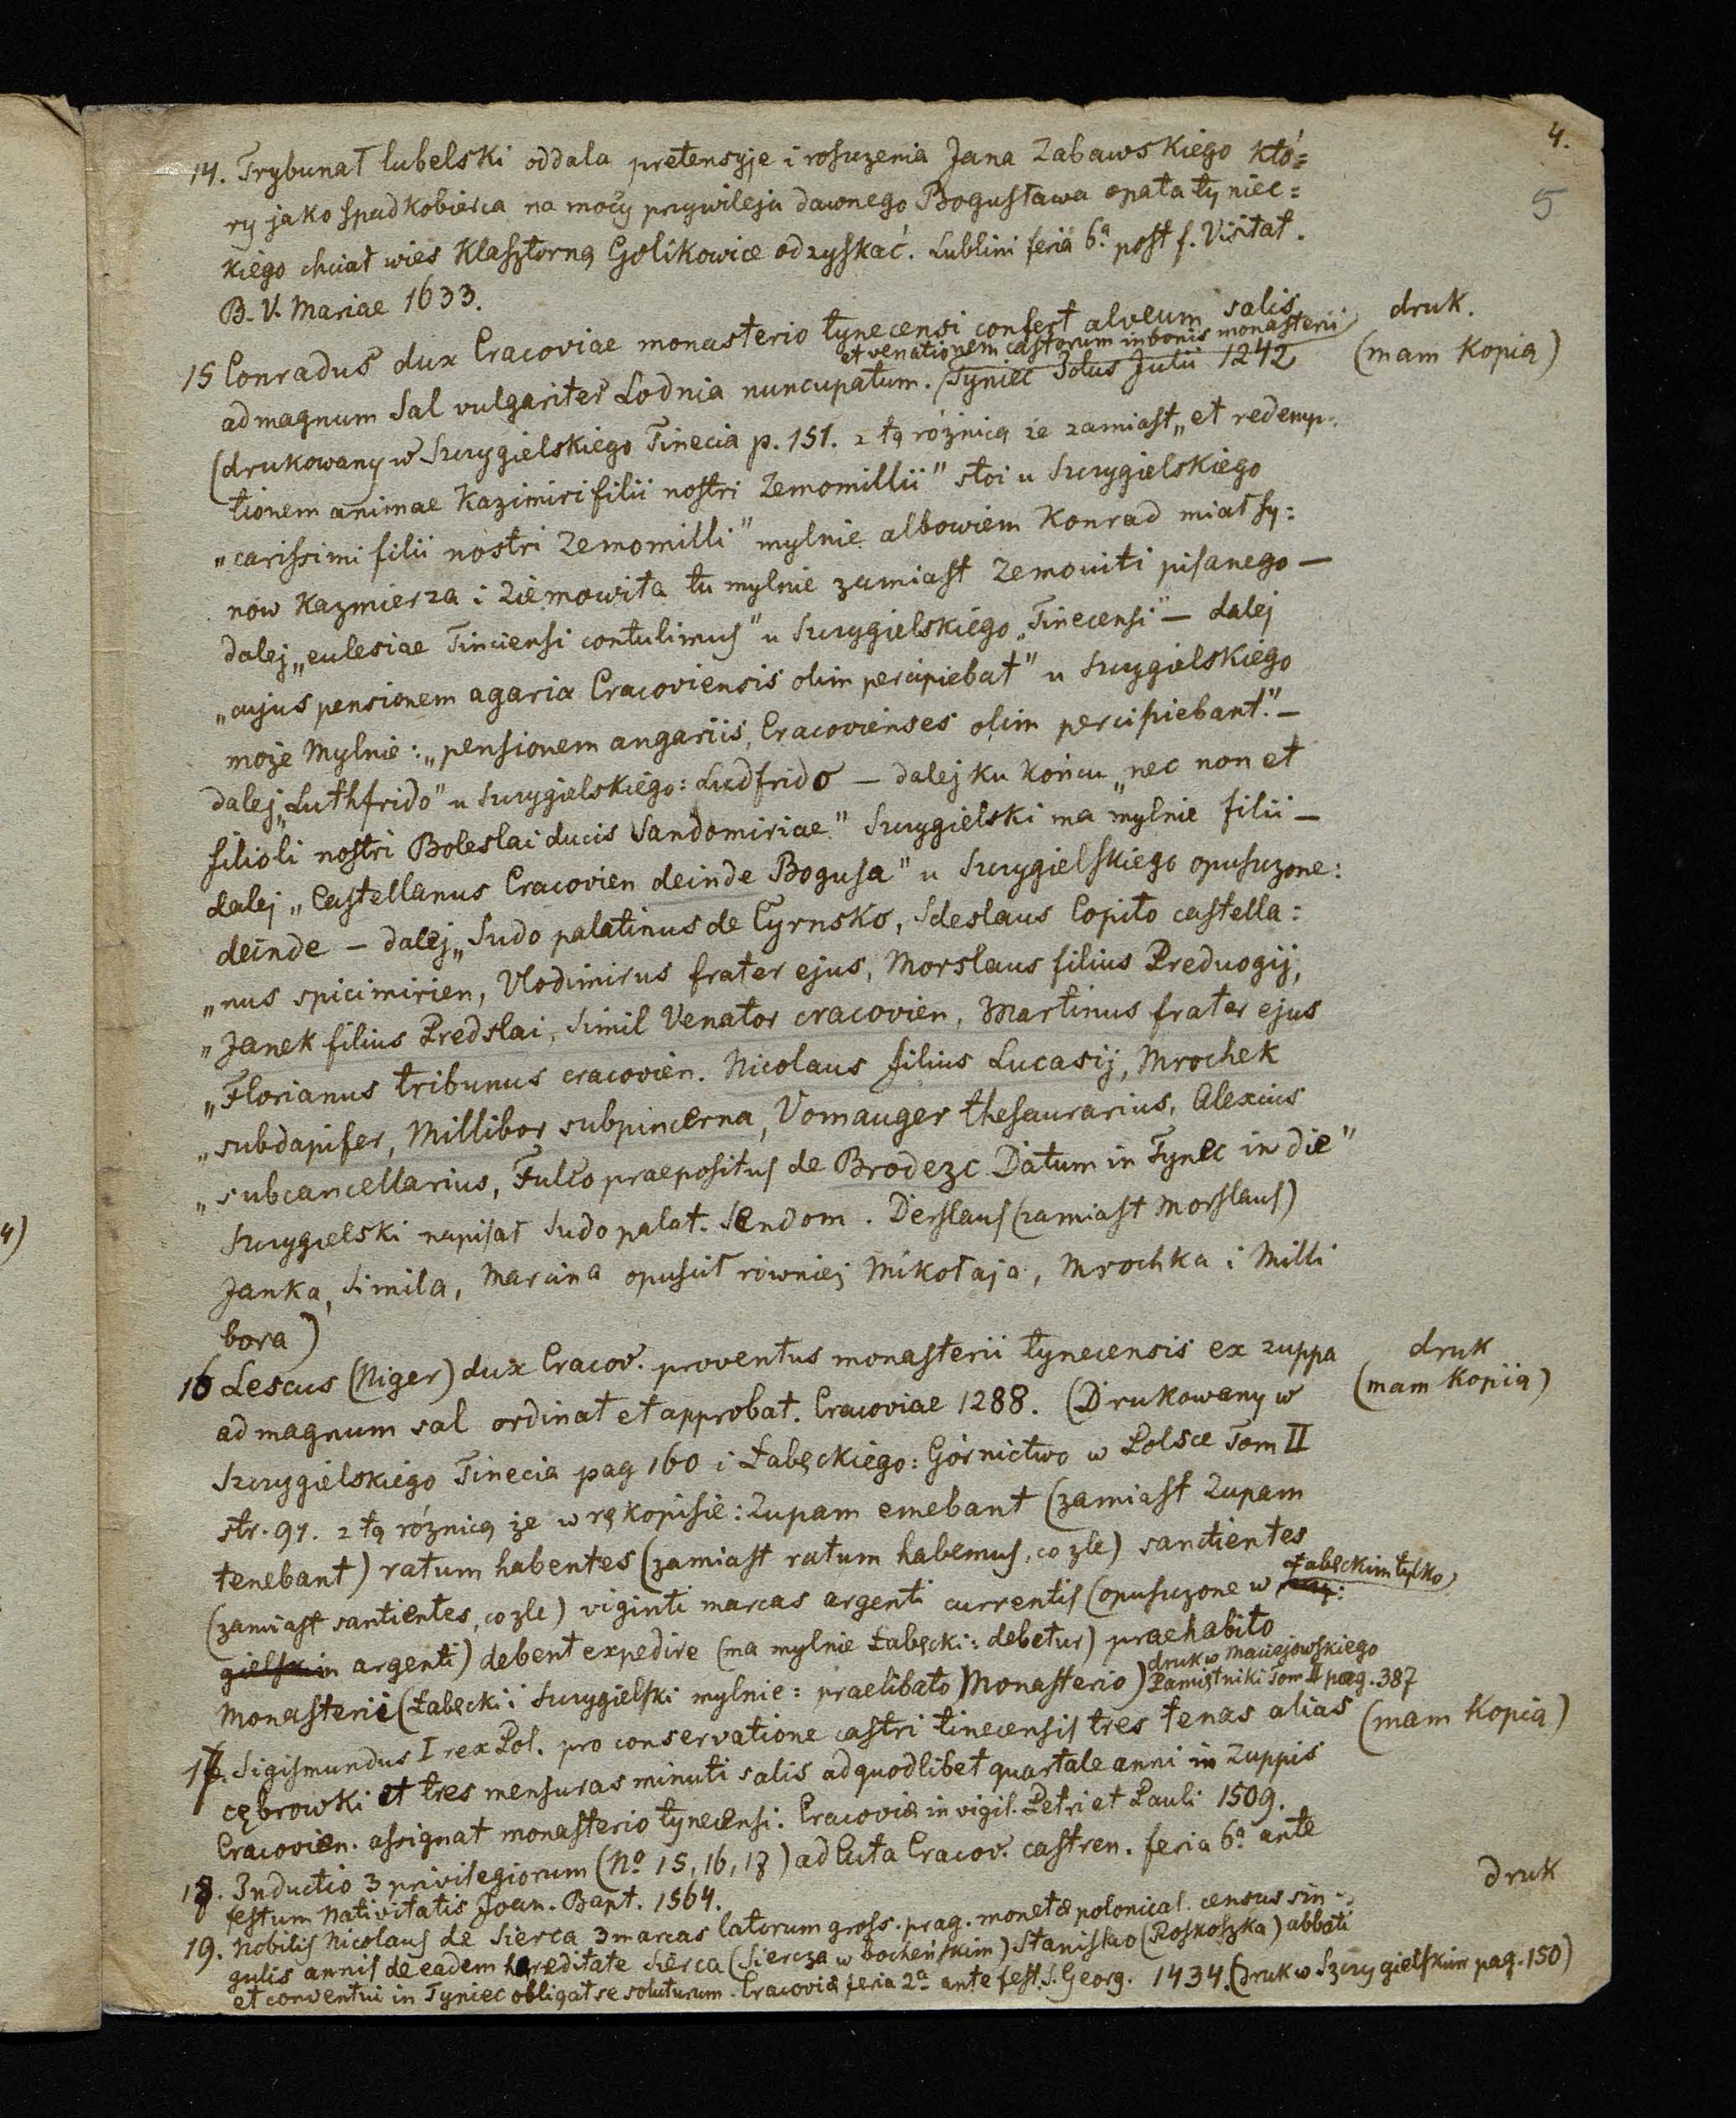 4.
5
14. Trybunał lubelski oddala pretensyje i roszczenia Jana Zabawskiego któ=
ry jako spadkobierca na mocy przywileju dawnego Bogusława opata tyniec=
kiego chciał wieś klasztorną Golikowice odzyskać. Lublini feria 6ª post f. Visitat.
B. V. Mariae 1633.
15 Conradus dux Cracoviae monasterio tynecensi confert alveum salis
druk.
et venationem castorum in bonis monasterii
(mam Kopią)
ad magnum Sal vulgariter Lodnia nuncupatum. Tyniec Idus Julii 1242
(drukowany w Szczygielskiego Tinecia p. 151. z tą różnicą że zamiast „et redemp-
tionem animae Kazimiri filii nostri Zemomillii" stoi u Szczygielskiego
„carissimi filii nostri Zemomilli" mylnie albowiem Konrad miał sy=
nów Kazmierza i Ziemowita tu mylnie zamiast Zemoviti pisanego —
dalej „eclesiae Tinciensi contulimus" u Szczygielskiego „Tinecensi" — dalej
„cujus pensionem agaria Cracoviensis olim percipiebat" u Szczygielskiego
może mylnie: „pensionem angariis, Cracovienses olim percipiebant." —
dalej „Luthfrido" u Szczygielskiego: Ludfrido — dalej ku końcu „nec non et
filioli nostri Boleslai ducis Sandomiriae" Szczygielski ma mylnie filii —
dalej „Castellanus Cracovien deinde Bogusa" u Szczygielskiego opuszczone:
deinde — dalej „Sudo palatinus de Cyrnsko, Sdeslaus Copito castella=
„nus spicimirien, Vlodimirus frater ejus, Morslaus filius Preduogij,
„Janek filius Predslai, Simil Venator cracovien, Martinus frater ejus
„Florianus tribunus cracovien. Nicolaus filius Lucasij, Mrochek
„subdapifer, Millibor subpincerna, Vomauger thesaurarius, Alexius
„subcancellarius, Fulco praepositus de Brodezc Datum in Tynec in die"
Szczygielski napisał Sudo palat. Sendom. Derslaus (zamiast Morslaus)
Janka, Simila, Marcina opuścił również Mikołaja, Mrochka i Milli
bora)
16 Lescus (Niger) dux Cracov. proventus monasterii tynecensis ex zuppa
druk
ad magnum sal ordinat et approbat. Cracoviae 1288. (Drukowany w
(mam Kopią)
Szczygielskiego Tinecia pag 160 i Łabęckiego: Górnictwo w Polsce Tom II
str. 91. z tą różnicą że w rękopisie: Zupam emebant (zamiast Zupam
tenebant) ratum habentes (zamiast ratum habemus, co źle) sanctientes
(zamiast santientes, co źle) viginti marcas argenti currentis (opuszczone w Łabęckim tylko
gielskim argenti) debent expedire (ma mylnie Łabęcki: debetur) praehabito
Monasterii (Łabęcki i Szczygielski mylnie: praelibato Monasterio)
druk w Maciejowskiego
Pamiętniki Tom II pag. 387
17. Sigismundus I rex Pol. pro conservatione castri tinecensis tres tenas alias
(mam Kopią)
cębrowki et tres mensuras minuti salis ad quodlibet quartale anni in Zuppis
Cracovien. assignat monasterio tynecensi. Cracoviæ in vigil. Petri et Pauli 1509.
18. Inductio 3 privilegiorum (Nº 15, 16, 17) ad Acta Cracov. castren. feria 6ª ante
festum Nativitatis Joan. Bapt. 1564.
druk
19. Nobilis Nicolaus de Sierca 3 marcas latorum gross. prag. monetæ polonical. census sin-
gulis annis de eadem hereditate Sierca (Siercza w bocheńskim) Stanislao (Roskoszka) abbati
et conventui in Tyniec obligat se soluturum. Cracoviæ feria 2ª ante fest. S. Georg. 1434. (druk w Szczygielskim pag. 150)